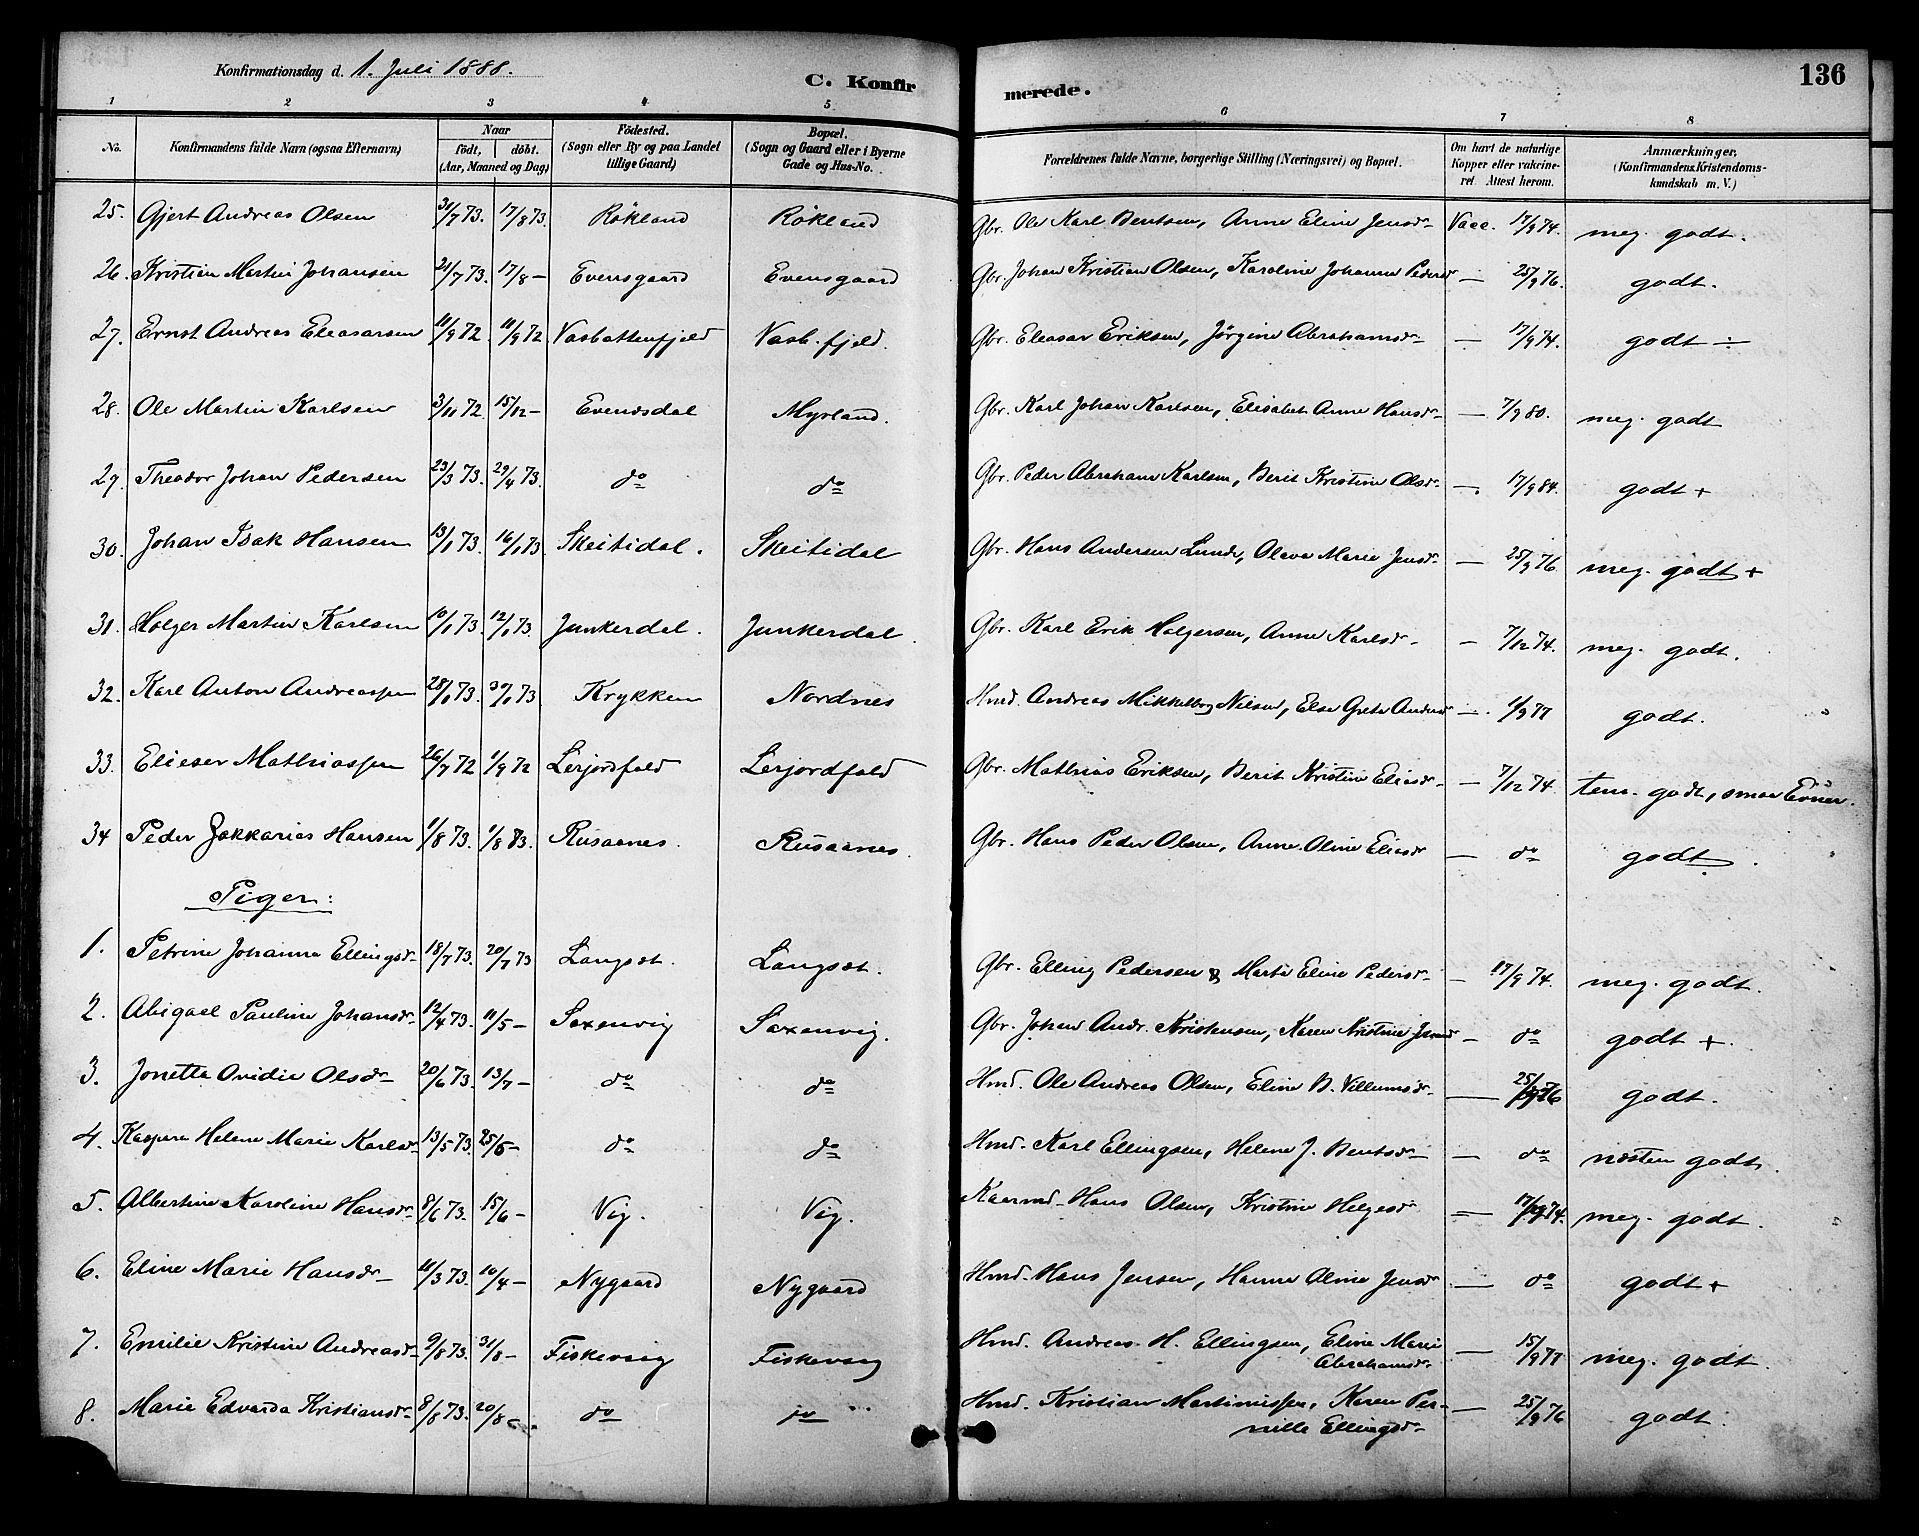 Konfirmationsdag d. 1. Juli 1888.
C. Konfirmerede.
136
1 2 3 4 5 6 7 8
No.
Konfirmandens fulde Navn (ogsaa Efternavn)
Naar
födt, döbt.
(Aar, Maaned og Dag)
Födested.
(Sogn eller By og paa Landet tillige Gaard)
Bopæl.
(Sogn og Gaard eller i Byerne Gade og Hus-No.
Forældrenes fulde Navne, borgerlige Stilling (Næringsvei) og Bopæl.
Om havt de naturlige Kopper eller vakcineret. Attest herom.
Anmærkninger.
(Konfirmandens Kristendomskundskab m. V.)
25. Gjert Andreas Olsen 31/7 73. 17/8 73. Rökland Rökland Gbr. Ole Karl Bentsen, Anne Eline Jensdr Vacc. 17/9 74. meg. godt.
26. Kristian Martin Johansen 21/7 73. 17/8 – Evensgaard Evensgaard Gbr. Johan Kristian Olsen, Karoline Johanna Pedersd — 25/9 76. godt.
27. Ernst Andreas Eleasarsen 11/9 72. 11/9 72 Vasbottenfjeld Vasb. fjeld. Gbr. Eleasar Eriksen, Jörgine Abrahamsdr — 17/9 74. godt ÷
28. Ole Martin Karlsen 3/11 72 15/12 – Evensdal Myrland. Gbr. Karl Johan Karlsen, Elisabet Anne Hansdr — 7/9 80. meg. godt
29. Theodor Johan Pedersen 23/3 73. 29/4 73. do do Gbr. Peder Abraham Karlsen, Berit Kristine Olsdr — 17/9 84. godt +
30. Johan Isak Hansen 13/1 73. 16/1 73 Skeitidal. Skeitidal Gbr. Hans Andersen Lund, Olava Marie Jensdr — 25/9 76 meg. godt +
31. Holger Martin Karlsen 10/1 73. 12/1 73. Junkerdal. Junkerdal. Gbr. Karl Erik Holgersen, Anne Karlsdr — 7/12 74. meg. godt.
32. Karl Anton Andreassen 28/1 73. 30/1 73 Krykken Nordnes Hmd. Andreas Mikkelborg Nilsen, Else Grete Andersd — 1/9 77 godt.
33. Elieser Mathiassen 26/7 72 1/9 72 Lerjordfald Lerjordfald Gbr. Mathias Eriksen, Berit Kristine Eliasdr — 7/12 74. tem. godt, smaa Evner.
34 Peder Zakkarias Hansen 1/8 73. 1/8 83. Rusaanes. Rusaanes. Gbr. Hans Peder Olsen, Anne Oline Eliasdr — do godt.
Piger:
1. Petrine Johanna Ellingsdr 18/7 73. 20/7 73 Langset. Langset. Gbr. Elling Pedersen & Marta Eline Pedersdr — 17/9 74. meg. godt.
2. Abigael Pauline Johansdr 12/4 73. 11/5 – Saxenvig Saxenvig. Gbr. Johan Andr. Kristensen, Karen Kristine — do godt +.
3. Jonetta Ovidie Olsdr 20/6 73. 13/7 – do do Hmd. Ole Andreas Olsen, Eline B. Villumsdr — 25/9 76 godt.
4. Kaspara Helene Marie Karlsdr 13/5 73. 25/5 – do do Hmd. Karl Ellingsen, Helene J. Bentsdr — do næsten godt.
5. Albertine Karoline Hansdr 8/6 73. 15/6 – Vig. Vig. Kaarmd. Hans Olsen, Kristine Helgesdr — 17/9 74. meg. godt.
6. Eline Marie Hansdr 11/3 73. 10/4 – Nygaard Nygaard Hmd. Hans Jensen, Hanna Oline Jensdr — do godt +
7. Emilie Kristine Andreasdr 9/8 73. 31/8 – Fiskevaag Fiskevaag Hmd. Andreas H. Ellingsen, Eline Marie
Abrahamsdr — 15/9 77 meg. godt.
8. Marie Edvarda Kristiansdr 8/8 73. 20/8 – do do Hmd. Kristian Martinussen, Karen Per-
nille Ellingsdr — 25/9 76 godt.